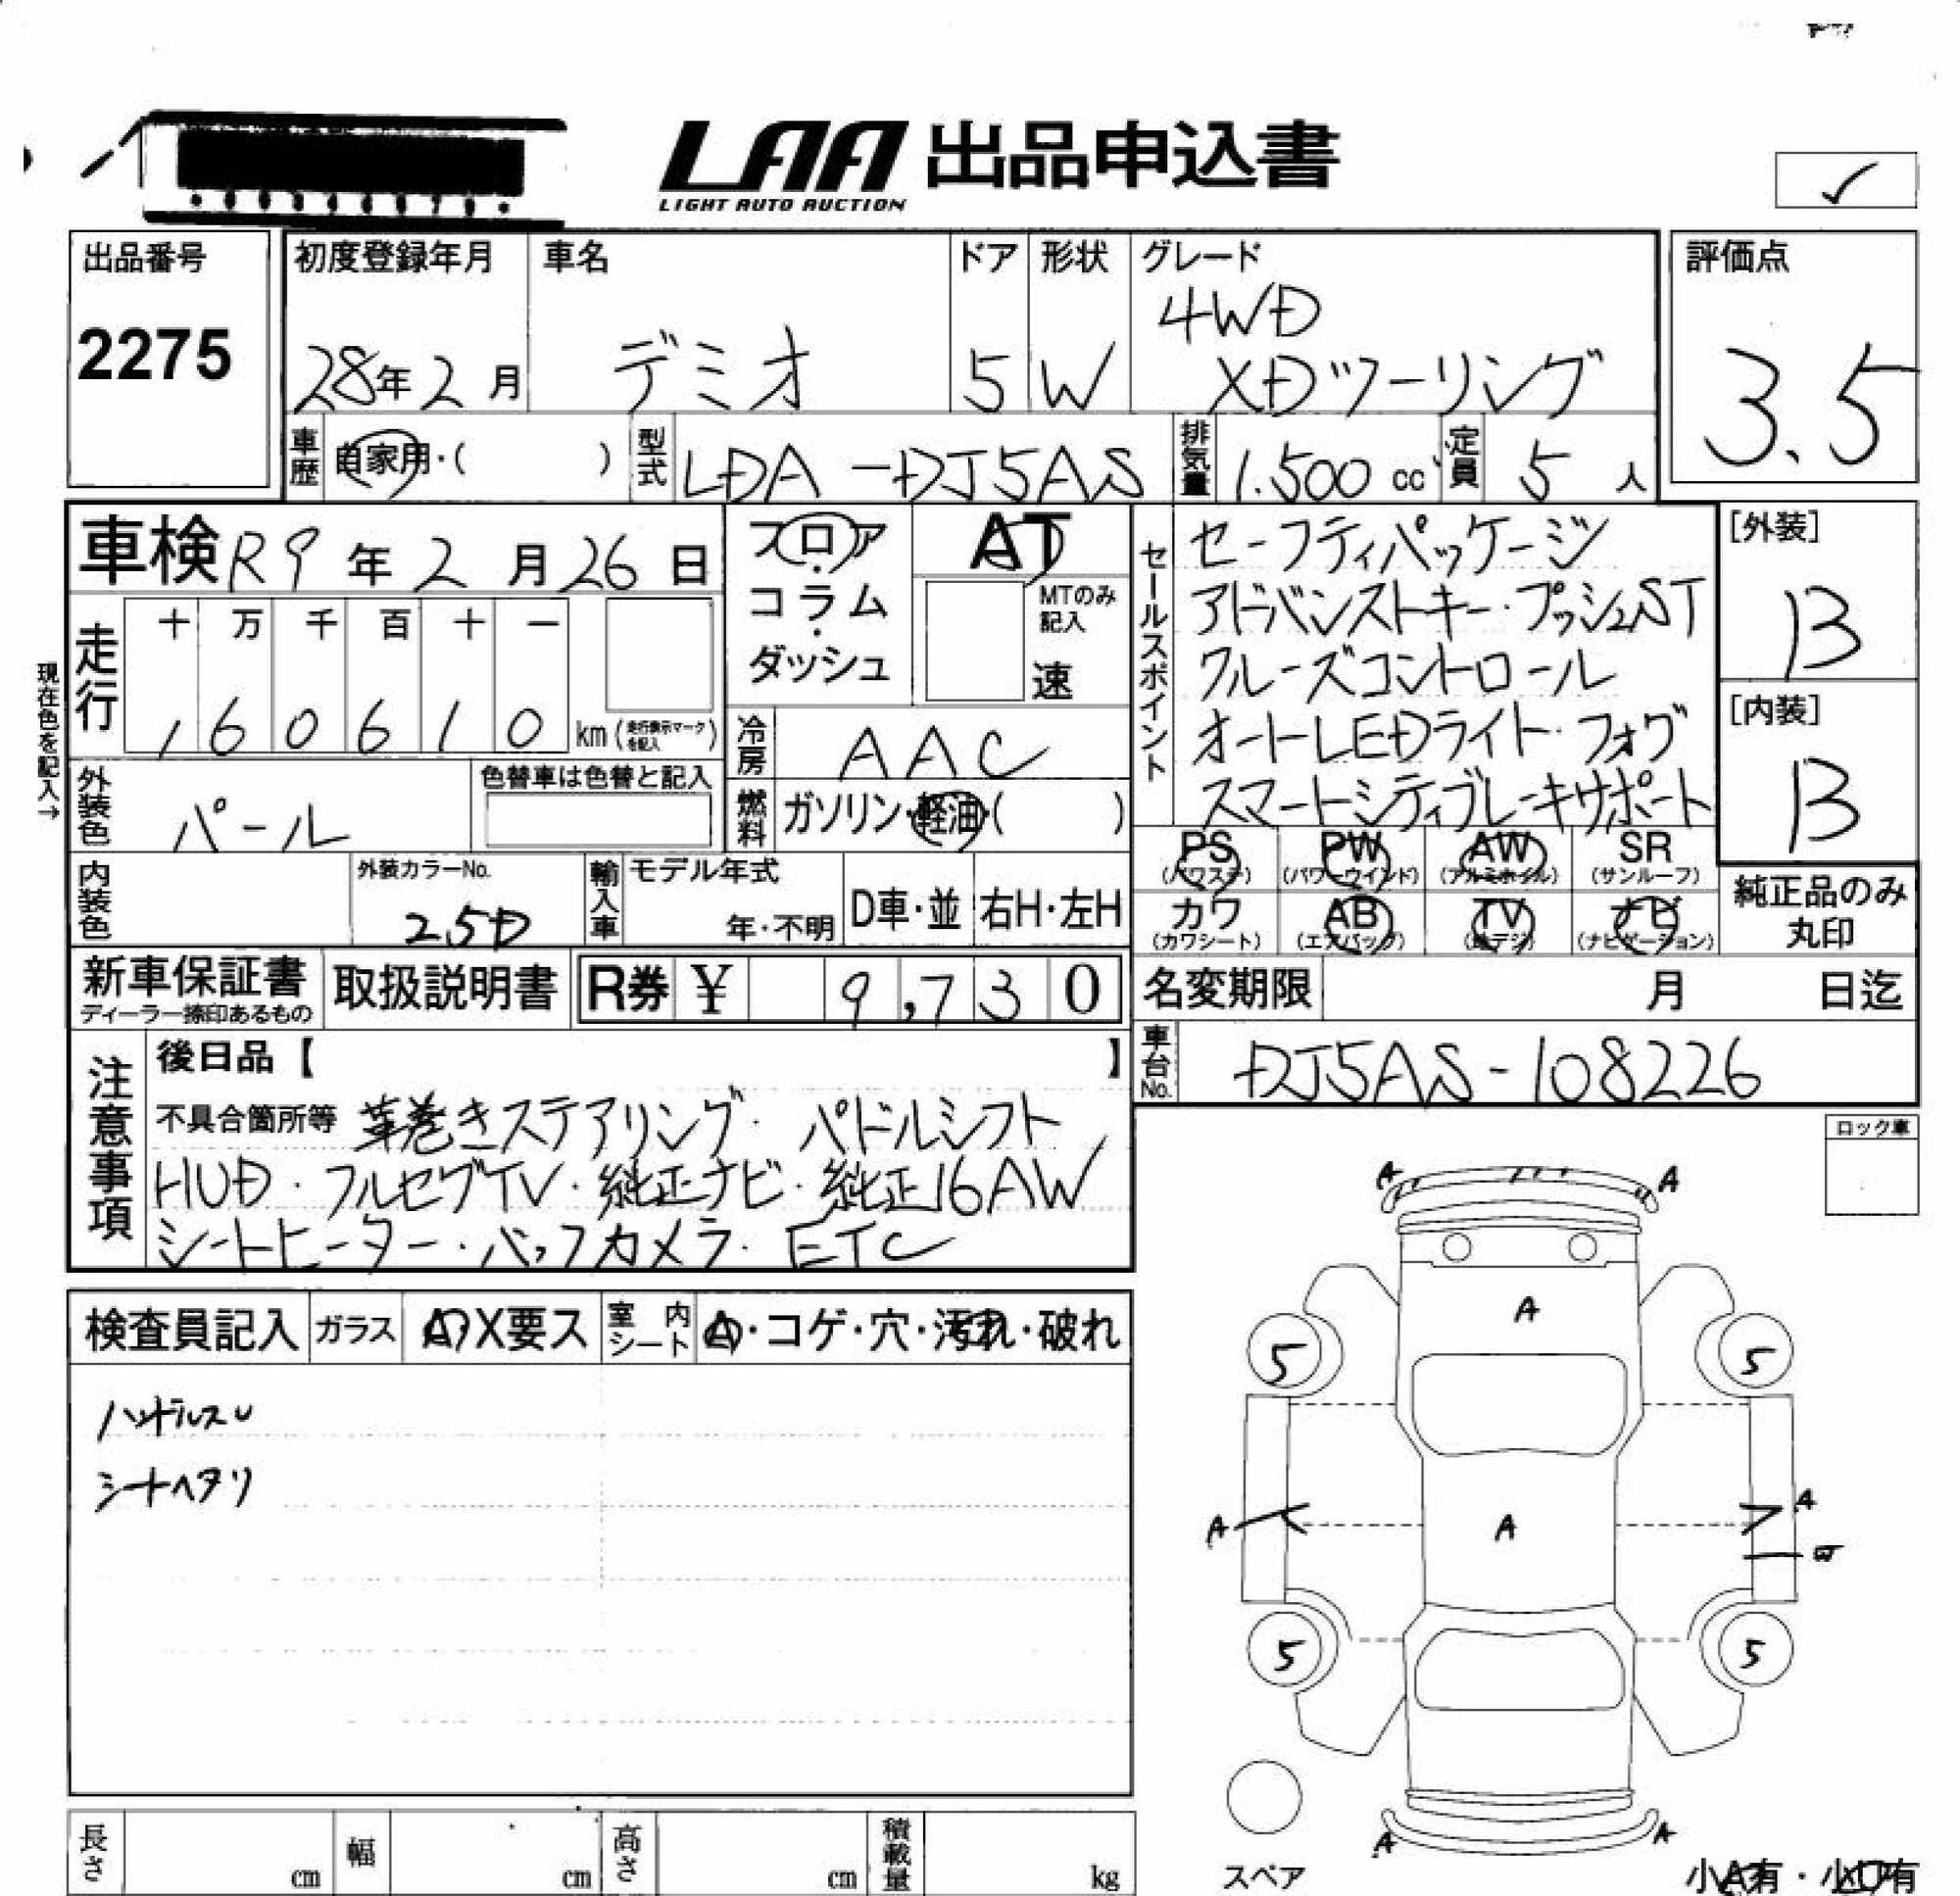 LAA 出品申込書
LIGHT AUTO AUCTION
✓
出品番号
2275
初度登録年月
28年2月
車名
デミオ
ドア
5
形状
W
グレード
4WD
XDツーリング
評価点
3.5
車歴 自家用・( )
型式 LDA-DJ5AS
排気量 1.500 cc
定員 5 人
車検 R9年2月26日
現在色を記入→
走行
十 万 千 百 十 一
1 6 0 6 1 0 km (走行表示マークを記入)
フロア・コラム・ダッシュ
AT
MTのみ記入
速
冷房 AAC
燃料 ガソリン・軽油・( )
外装色 パール
色替車は色替と記入
内装色
外装カラーNo.
25D
輸入車
モデル年式
年・不明
D車・並
右H・左H
セールスポイント
セーフティパッケージ
アドバンストキー・プッシュST
クルーズコントロール
オートLEDライト・フォグ
スマートシティブレーキサポート
[外装]
B
[内装]
B
PS (パワステ)
PW (パワーウインド)
AW (アルミホイル)
SR (サンルーフ)
カワ (カワシート)
AB (エアバッグ)
TV (地デジ)
ナビ (ナビゲーション)
純正品のみ
丸印
新車保証書
ディーラー捺印あるもの
取扱説明書
R券 ¥ 9,730
名変期限 月 日迄
車台No. DJ5AS-108226
注意事項
後日品【 】
不具合箇所等 革巻きステアリング・パドルシフト
HUD・フルセグTV・純正ナビ・純正16AW
シートヒーター・バックカメラ・ETC
ロック車
検査員記入
ガラス A・X要ス
室内シート A・コゲ・穴・汚れ・破れ
ハンドルスレ
シートヘタリ
A A
A
5 5
A A A
W
5 5
A A
スペア
小A有・小U有
長さ cm
幅 cm
高さ cm
積載量 kg